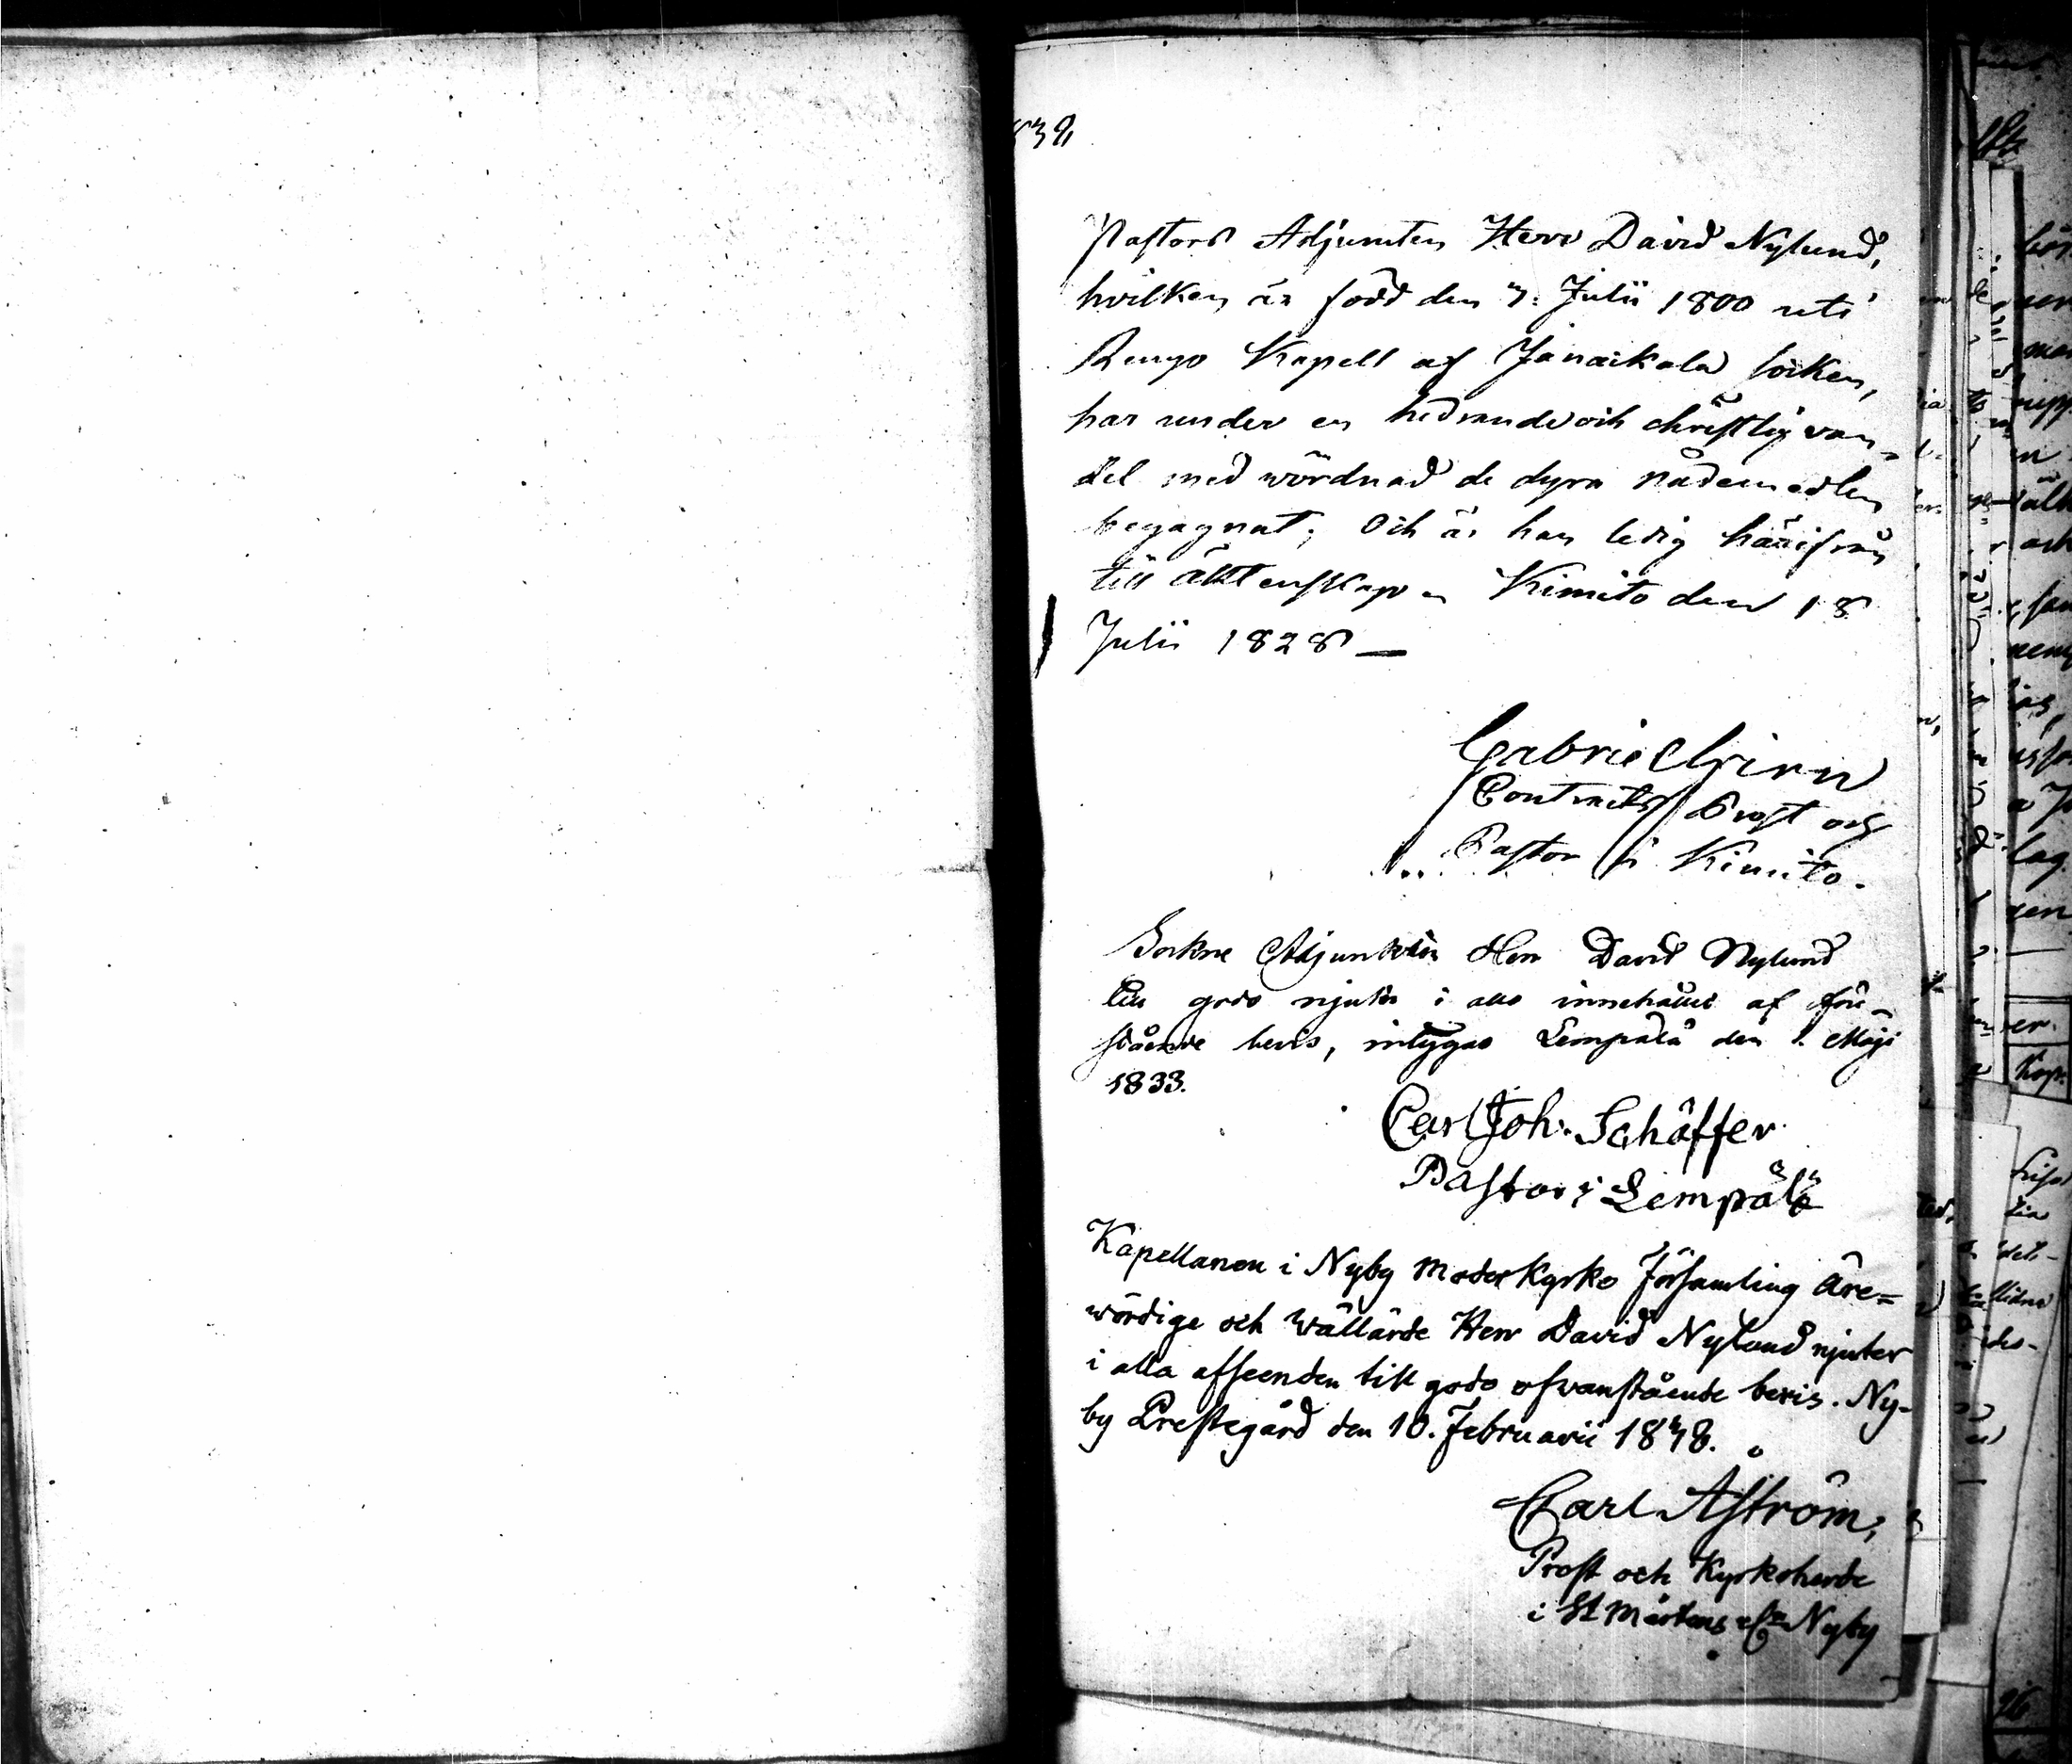 Pastors Adjuncten Herr David Nylund,
hvilken är född den 7. Julii 1800 uti
Rengo Kapell af Janaikala socken,
har under en hedrande och christlig van-
del med wördnad de dyra nådemedlen
begagnat; Och är han ledig härifrån
till äktenskap. Kimito den 18
Julii 1828 —
Gabriel Hirn
Contracts Prost och
Pastor i Kimito.
Sockne Adjunkten Herr David Nylund
till godo njuter i allo innehållet af före-
stående bevis, intygas Lempälä den 1. Maji
1833.
Carl Joh. Schäffer
Pastor i Lempälä
Kapellanen i Nyby Moderkyrko Församling Äre=
wördige och Wällärde Herr David Nylund njuter
i alla afseenden till godo ofvanstående bevis. Ny-
by Prestegård den 10. Februarii 1848.
Carl Åström,
Prost och Kyrkoherde
i St Mårtens och Nyby